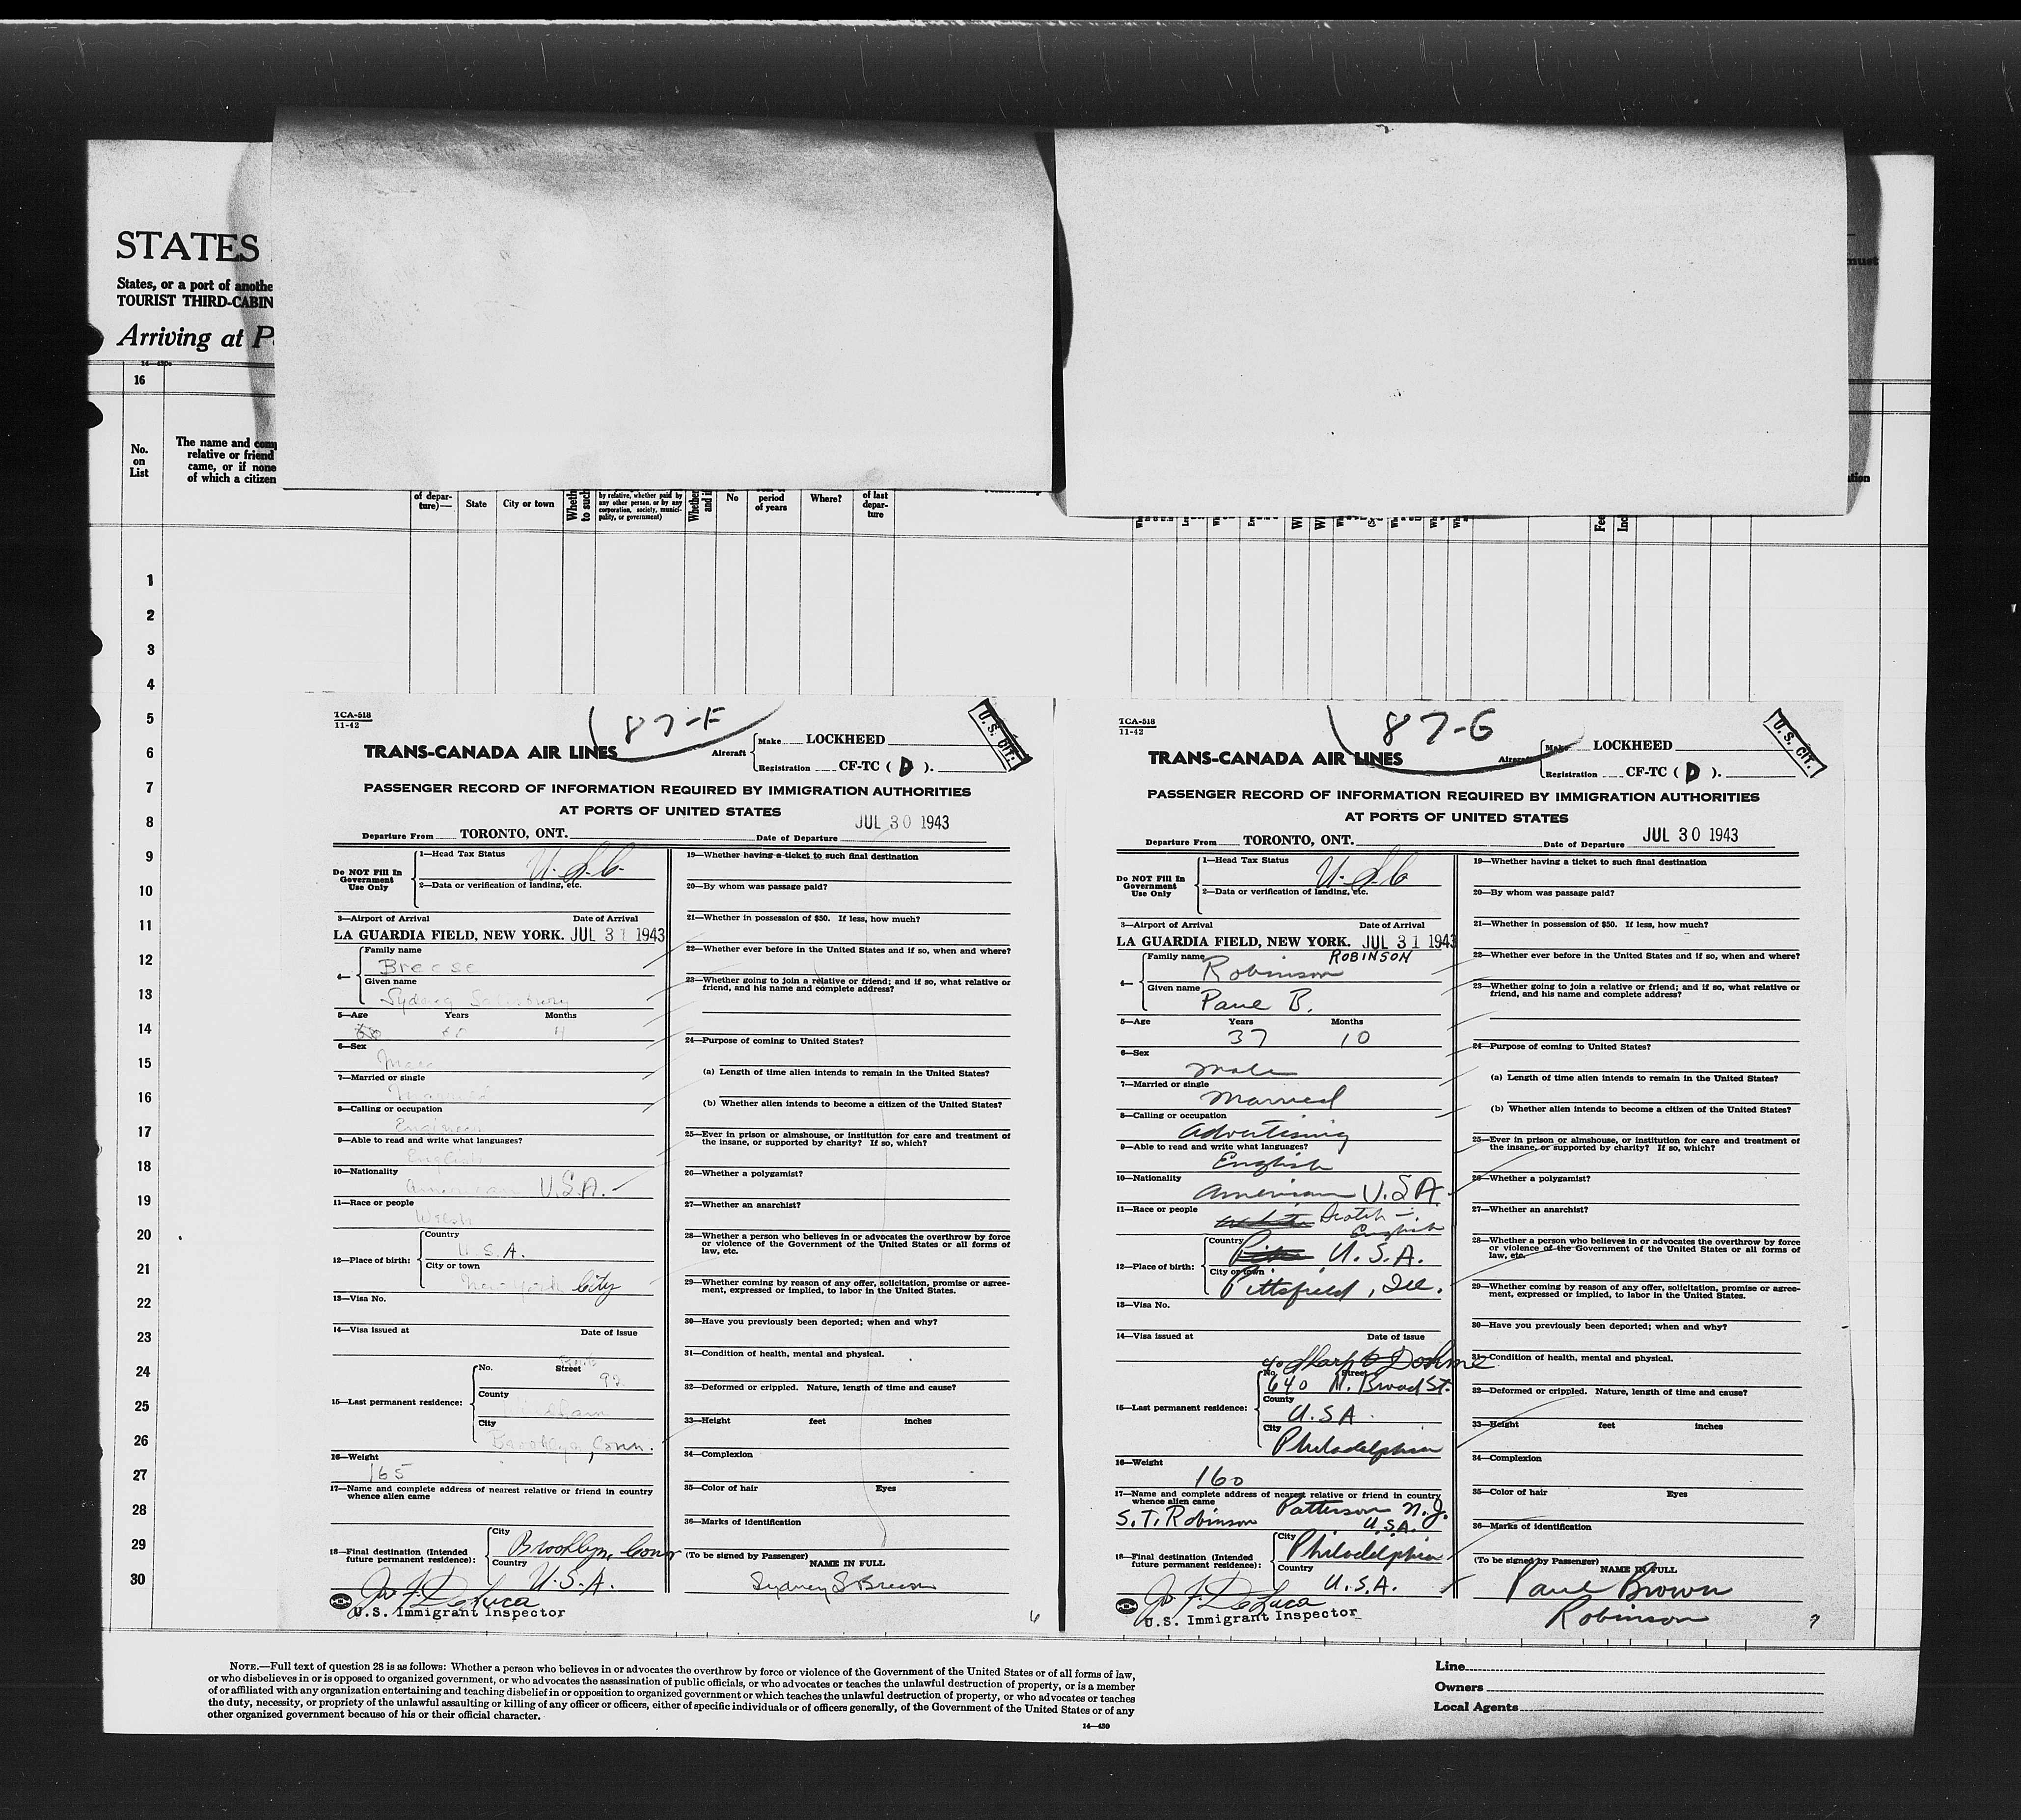 STATES
States, or a port of anothe
TOURIST THIRD-CABIN
Arriving at P
must
16
No.
on
List
The name and comp
relative or friend
came, or if none
of which a citizen
of depar-
ture)—
State
City or town
Wheth
to such
by relative, whether paid by
any other person, or by any
corporation, society, munici-
pality, or government)
Whether
and i
No
period
of years
Where?
of last
depar-
ture
Fee
Inc
1
2
3
4
5
6
7
8
9
10
11
12
13
14
15
16
17
18
19
20
21
22
23
24
25
26
27
28
29
30
TCA-518
11-42
87-F
U.S. CIT.
TRANS-CANADA AIR LINES
Aircraft
Make LOCKHEED
Registration CF-TC ( D ).
PASSENGER RECORD OF INFORMATION REQUIRED BY IMMIGRATION AUTHORITIES
AT PORTS OF UNITED STATES
Departure From TORONTO, ONT. Date of Departure JUL 30 1943
Do NOT Fill In
Government
Use Only
1—Head Tax Status U.S.C.
2—Data or verification of landing, etc.
3—Airport of Arrival Date of Arrival
LA GUARDIA FIELD, NEW YORK. JUL 31 1943
4—
Family name
Breese
Given name
Sydney Salisbury
5—Age Years Months
60 4
6—Sex
Male
7—Married or single
Married
8—Calling or occupation
Engineer
9—Able to read and write what languages?
English
10—Nationality
American U.S.A.
11—Race or people
Welsh
12—Place of birth:
Country
U.S.A.
City or town
New York City
13—Visa No.
14—Visa issued at Date of issue
15—Last permanent residence:
No. Street
92
County
Windham
City
Brooklyn, Conn.
16—Weight
165
17—Name and complete address of nearest relative or friend in country
whence alien came
18—Final destination (Intended
future permanent residence):
City
Brooklyn, Conn
Country
U.S.A.
Jos F. DeLuca
U.S. Immigrant Inspector
19—Whether having a ticket to such final destination
20—By whom was passage paid?
21—Whether in possession of $50. If less, how much?
22—Whether ever before in the United States and if so, when and where?
23—Whether going to join a relative or friend; and if so, what relative or
friend, and his name and complete address?
24—Purpose of coming to United States?
(a) Length of time alien intends to remain in the United States?
(b) Whether alien intends to become a citizen of the United States?
25—Ever in prison or almshouse, or institution for care and treatment of
the insane, or supported by charity? If so, which?
26—Whether a polygamist?
27—Whether an anarchist?
28—Whether a person who believes in or advocates the overthrow by force
or violence of the Government of the United States or all forms of
law, etc.
29—Whether coming by reason of any offer, solicitation, promise or agree-
ment, expressed or implied, to labor in the United States.
30—Have you previously been deported; when and why?
31—Condition of health, mental and physical.
32—Deformed or crippled. Nature, length of time and cause?
33—Height feet inches
34—Complexion
35—Color of hair Eyes
36—Marks of identification
(To be signed by Passenger) NAME IN FULL
Sydney S Breese
6
TCA-518
11-42
87-G
U.S. CIT.
TRANS-CANADA AIR LINES
Aircraft
Make LOCKHEED
Registration CF-TC ( D ).
PASSENGER RECORD OF INFORMATION REQUIRED BY IMMIGRATION AUTHORITIES
AT PORTS OF UNITED STATES
Departure From TORONTO, ONT. Date of Departure JUL 30 1943
Do NOT Fill In
Government
Use Only
1—Head Tax Status U.S.C
2—Data or verification of landing, etc.
3—Airport of Arrival Date of Arrival
LA GUARDIA FIELD, NEW YORK. JUL 31 1943
4—
Family name ROBINSON
Robinson
Given name
Paul B.
5—Age Years Months
37 10
6—Sex
Male
7—Married or single
Married
8—Calling or occupation
Advertising
9—Able to read and write what languages?
English
10—Nationality
American U.S.A.
11—Race or people
Scotch —
English
12—Place of birth:
Country
U.S.A.
City or town
Pittsfield, Ill.
13—Visa No.
14—Visa issued at Date of issue
c/o Sharp & Dohme
15—Last permanent residence:
No. Street
640 N. Broad St.
County
U.S.A.
City
Philadelphia
16—Weight
160
17—Name and complete address of nearest relative or friend in country
whence alien came
S. T. Robinson Patterson N.J.
U.S.A.
18—Final destination (Intended
future permanent residence):
City
Philadelphia
Country
U.S.A.
Jos F. DeLuca
U.S. Immigrant Inspector
19—Whether having a ticket to such final destination
20—By whom was passage paid?
21—Whether in possession of $50. If less, how much?
22—Whether ever before in the United States and if so, when and where?
23—Whether going to join a relative or friend; and if so, what relative or
friend, and his name and complete address?
24—Purpose of coming to United States?
(a) Length of time alien intends to remain in the United States?
(b) Whether alien intends to become a citizen of the United States?
25—Ever in prison or almshouse, or institution for care and treatment of
the insane, or supported by charity? If so, which?
26—Whether a polygamist?
27—Whether an anarchist?
28—Whether a person who believes in or advocates the overthrow by force
or violence of the Government of the United States or all forms of
law, etc.
29—Whether coming by reason of any offer, solicitation, promise or agree-
ment, expressed or implied, to labor in the United States.
30—Have you previously been deported; when and why?
31—Condition of health, mental and physical.
32—Deformed or crippled. Nature, length of time and cause?
33—Height feet inches
34—Complexion
35—Color of hair Eyes
36—Marks of identification
(To be signed by Passenger) NAME IN FULL
Paul Brown
Robinson
7
NOTE.—Full text of question 28 is as follows: Whether a person who believes in or advocates the overthrow by force or violence of the Government of the United States or of all forms of law,
or who disbelieves in or is opposed to organized government, or who advocates the assassination of public officials, or who advocates or teaches the unlawful destruction of property, or is a member
of or affiliated with any organization entertaining and teaching disbelief in or opposition to organized government or which teaches the unlawful destruction of property, or who advocates or teaches
the duty, necessity, or propriety of the unlawful assaulting or killing of any officer or officers, either of specific individuals or of officers generally, of the Government of the United States or of any
other organized government because of his or their official character.
14—430
Line
Owners
Local Agents